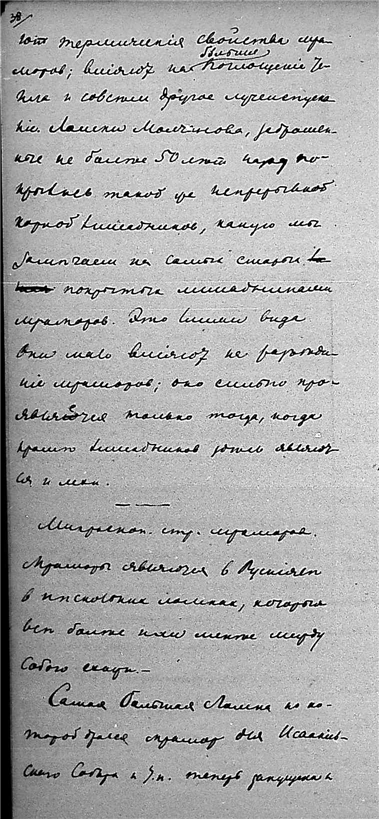 38/
ют термическия свойства мра-
большие
моров; влияют на поглощение те-
пла и совсем другое лучеиспуска-
ние. Ломки Молчанова, заброшен-
ные не более 50 лет назад по-
крылись такой же непрерывной
коркой лишайников, какую мы
замечаем на самых старых
покрытых лишайниками
мраморов. Это лишаи вида
Они мало влияют на разъеда-
ние мраморов; оно сильно про-
является только тогда, когда
кроме лишайников здесь являют
ся и мхи.
Микроскоп. стр. мраморов.
Мраморы являются в Рускеале
в нескольких ломках, которые
все более или менее между
собою сходн.-
Самая большая Ломка из ко-
торой брался мрамор для Исаакиев-
ского Собора и т.п. теперь запущена и